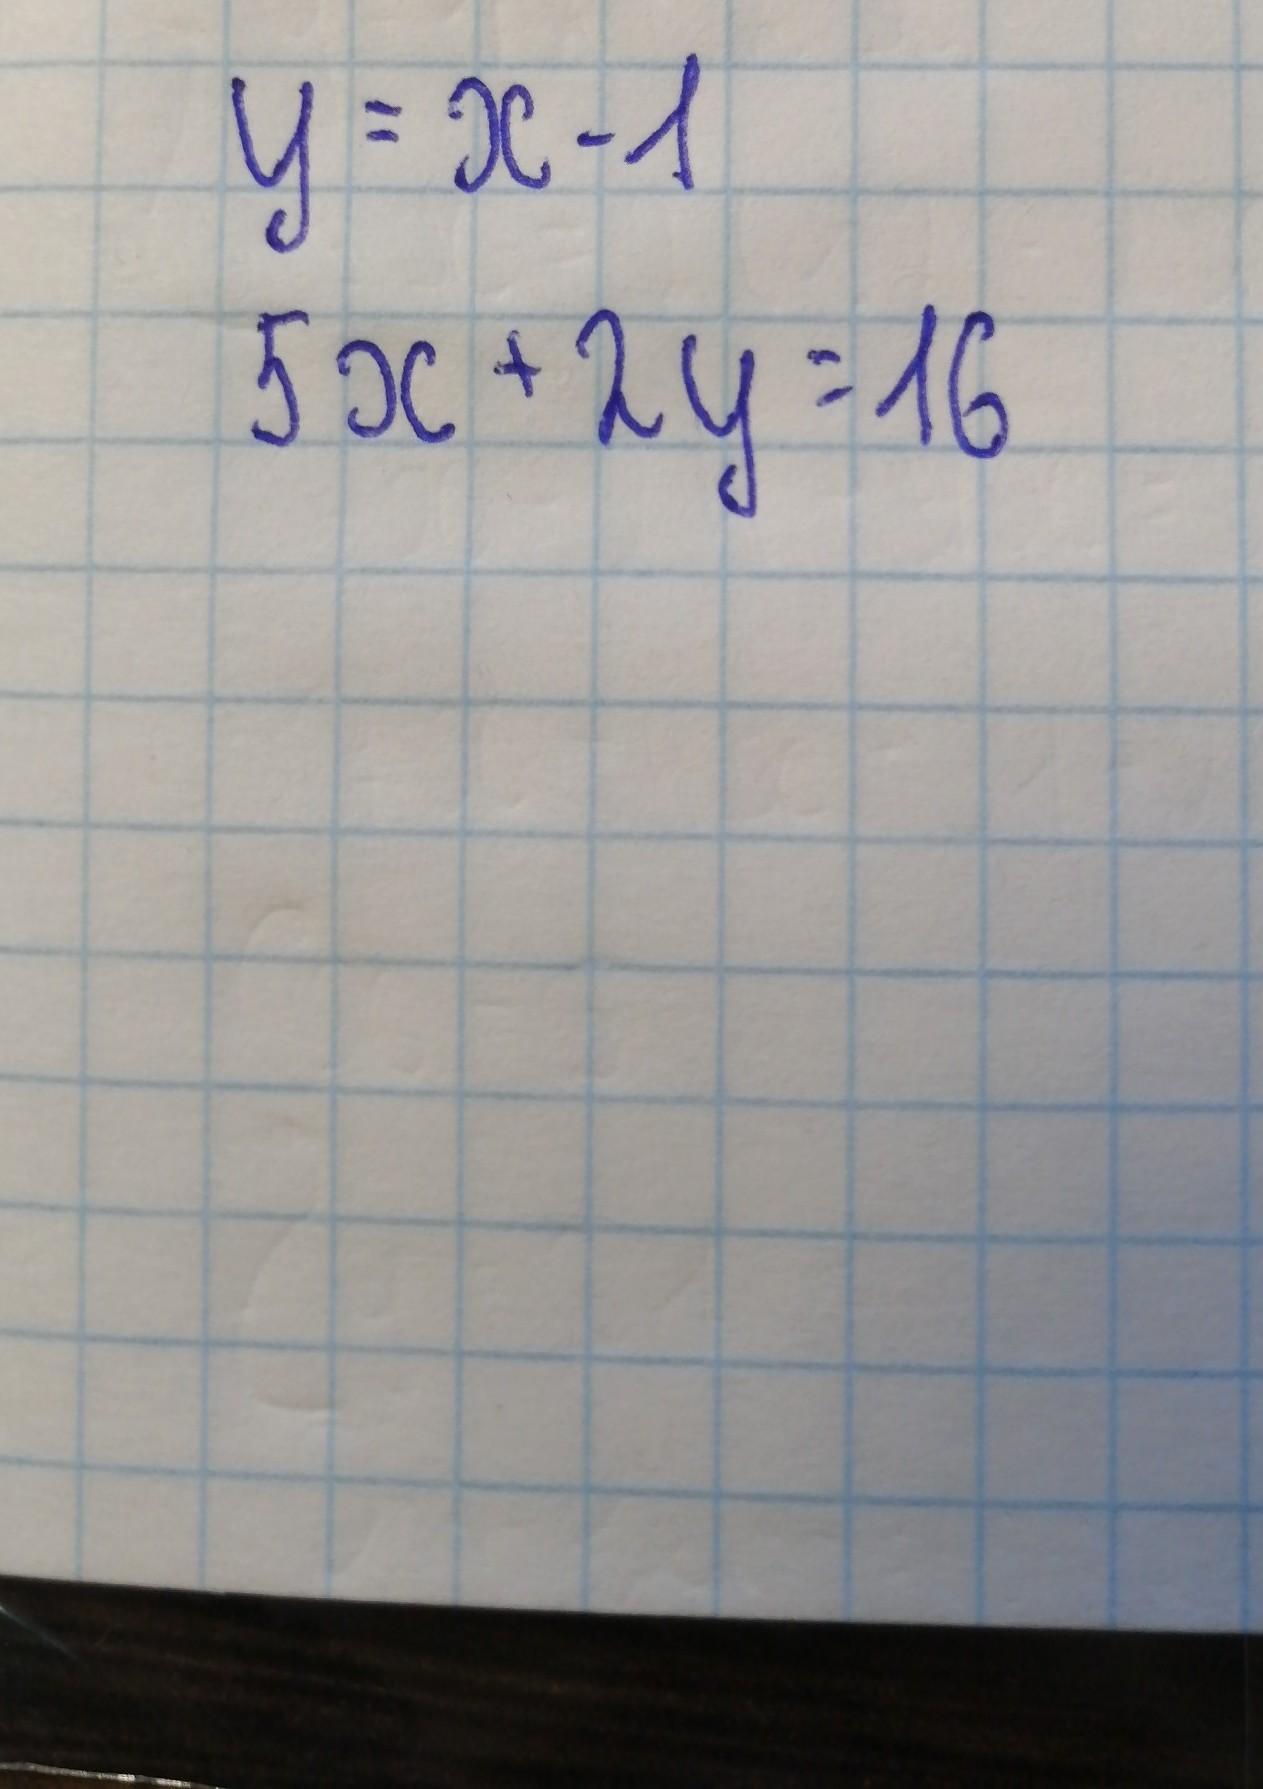 y = x - 1
5x + 2y = 16